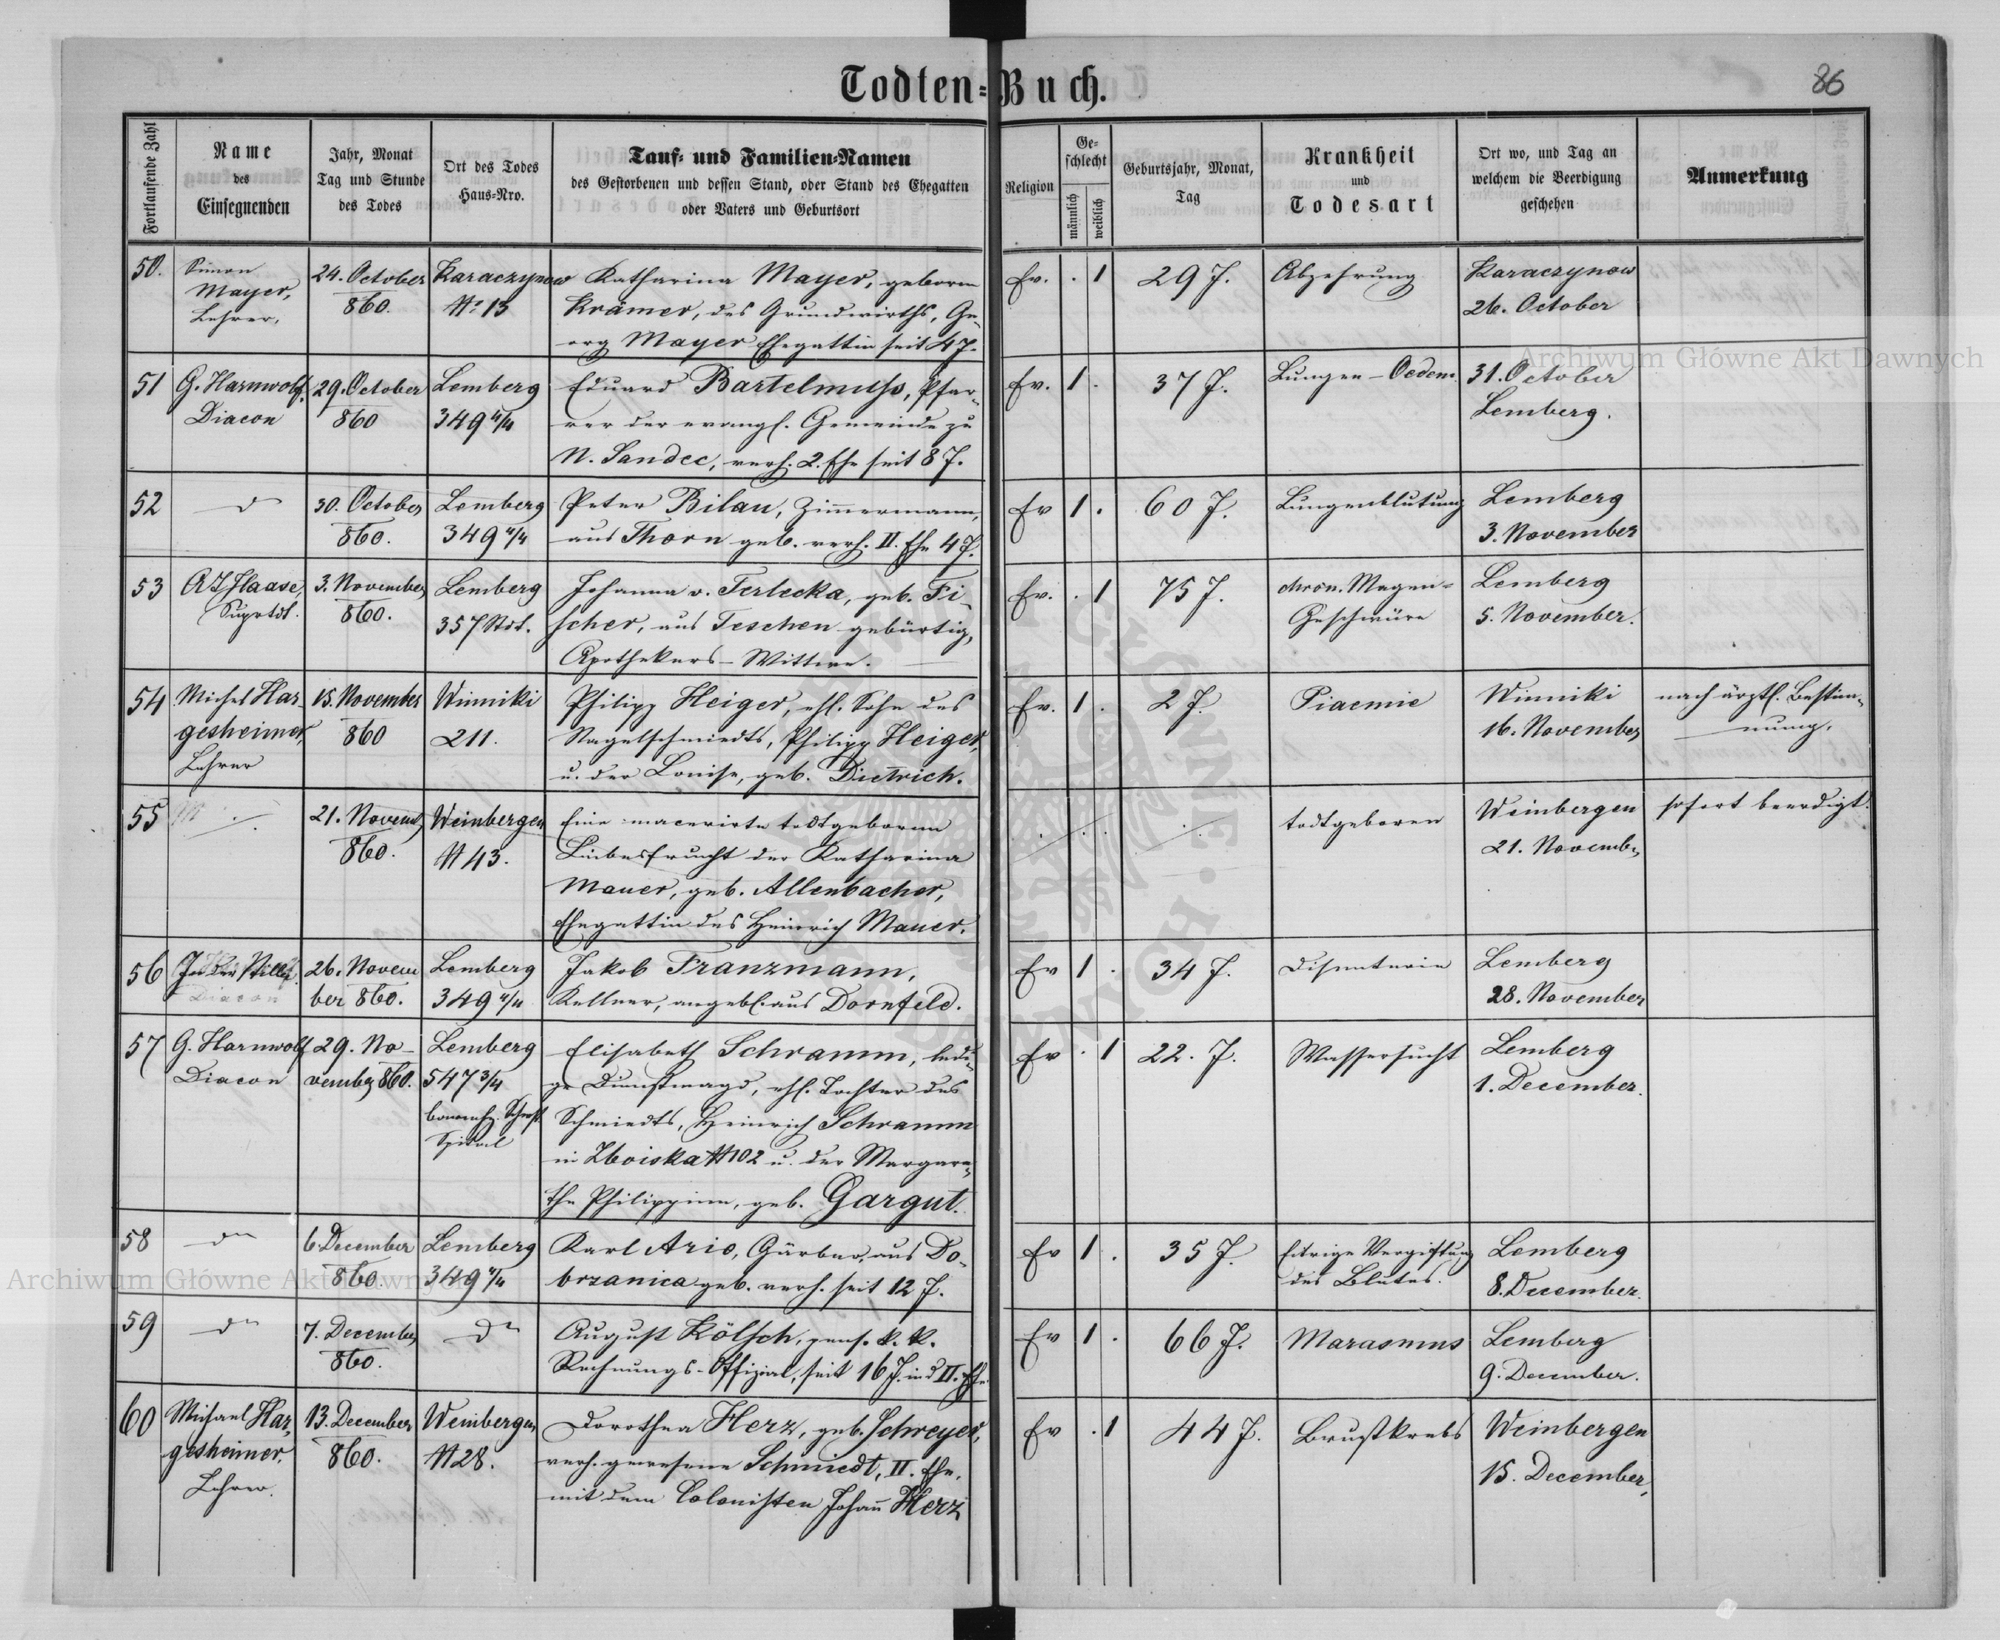 Todten=Buch.
86
Fortlaufende Zahl
Name
des
Einsegnenden
Jahr, Monat
Tag und Stunde
des Todes
Ort des Todes
Haus=Nro.
Tauf= und Familien=Namen
des Gestorbenen und dessen Stand, oder Stand des Ehegatten
oder Vaters und Geburtsort
Religion
Ge=
schlecht
männlich
weiblich
Geburtsjahr, Monat,
Tag
Krankheit
und
Todesart
Ort wo, und Tag an
welchem die Beerdigung
geschehen
Anmerkung
50.
Simon
Mayer,
Lehrer,
24. October
860.
Karaczynow
No 13
Katharina Mayer, geborne
Krämer, des Grundwirths, Ge-
org Mayer Ehegattin seit 4 J.
Ev. . 1
29 J.
Abzehrung
Karaczynow
26. October
51
G. Harnwolf,
Diacon
29. October
860
Lemberg
349 4/4
Eduard Bartelmuss, Pfar-
rer der evangl. Gemeinde zu
N. Sandec, verh. 2. Ehe seit 8 J.
Ev. 1 .
37 J.
Lungen-Oedem
31. October
Lemberg.
52
30. October
860.
Lemberg
349 4/4
Peter Bilau, Zimmermann,
aus Thorn geb. verh. II. Ehe 4 J.
Ev 1 .
60 J.
Lungenblutung
Lemberg
3. November
53
Haase,
Suprtdt.
3. November
860.
Lemberg
357 Stdt.
Johanna v. Terlecka, geb. Fi-
scher, aus Teschen gebürtig,
Apothekers-Wittwe.
Ev. . 1
75 J.
chron. Magen=
Geschwüre
Lemberg
5. November.
54
Michel Har-
gesheimer,
Lehrer
15. November
860
Winniki
211.
Philipp Heiger, ehl. Sohn des
Nagelschmiedts, Philipp Heiger,
u. der Louise, geb. Dietrich.
Ev. 1 .
2 J.
Piaemie
Winniki
16. November
nach ärztl. Bestim-
mung.
55
21. Novemb
860.
Weinbergen
N 43.
Eine macerirte todtgeborene
Leibesfrucht der Katharina
Mauer, geb. Allenbacher,
Ehegattin des Heinrich Mauer.
todtgeboren
Weinbergen
21. Novemb.
sofort beerdigt.
56
Diacon
26. Novem
ber 860.
Lemberg
349 4/4
Jakob Franzmann,
Kellner, angebl. aus Dornfeld.
Ev 1 .
34 J.
Disenterie
Lemberg
28. November
57
G. Harnwolf
Diacon
29. No-
vember 860.
Lemberg
547 3/4
Spital
Elisabeth Schramm, ledi-
ge Dienstmagd, ehl. Tochter des
Schmiedts, Heinrich Schramm
in Zboiska N 102 u. der Margare-
the Philippine, geb. Gargut.
Ev . 1
22. J.
Wassersucht
Lemberg
1. December.
58
dto
6. December
860.
Lemberg
349 4/4
Karl Ario, Gärber, aus Do-
brzanica geb. verh. seit 12 J.
Ev 1 .
35 J.
Eitrige Vergiftung
des Blutes.
Lemberg
8. December.
59
dto
7. December
860.
dto
August Kölsch, pens. k. k.
Rechnungs-Offizial, seit 16 J. in d. II. Ehe.
Ev 1 .
66 J.
Marasmus
Lemberg
9. December.
60
Michael Har-
gesheimer.
Lehrer.
13. December
860.
Weinbergen
N 28.
Dorothea Herz, geb. Schreyer,
verh. gewesene Schmiedt, II. Ehe.
mit dem Colonisten Johann Herz
Ev . 1
44 J.
Brustkrebs
Weinbergen
15. December,
Archiwum Główne Akt Dawnych
Archiwum Główne Akt Dawnych